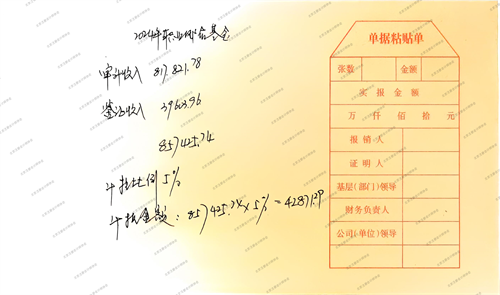 2024年职业风险基金
审计收入 817,821.78
鉴证收入 39603.96
857425.74
计提比例 5%
计提金额：857425.74×5%=42871.29
单据粘贴单
张数 金额
实报金额
万 仟 佰 拾 元
报销人
证明人
基层(部门)领导
财务负责人
公司(单位)领导